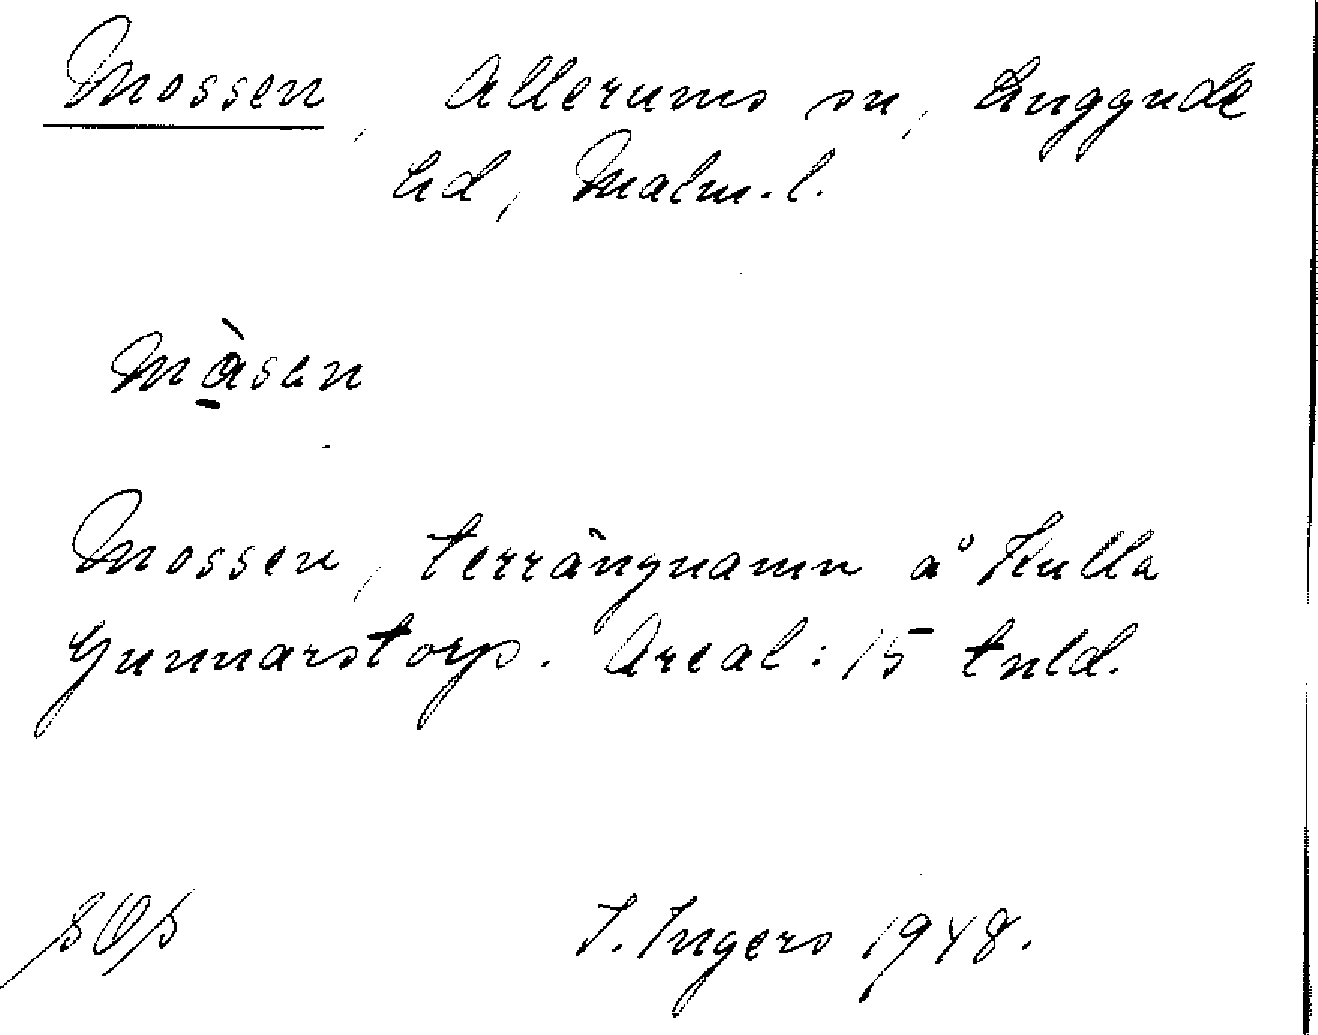 Mossen, Allerums sn, Luggude
hd, Malm.l.
màsen
Mossen, terrängnamn å Kulla
Gunnarstorp. Areal: 15 tnld.
I. Ingers 1948.